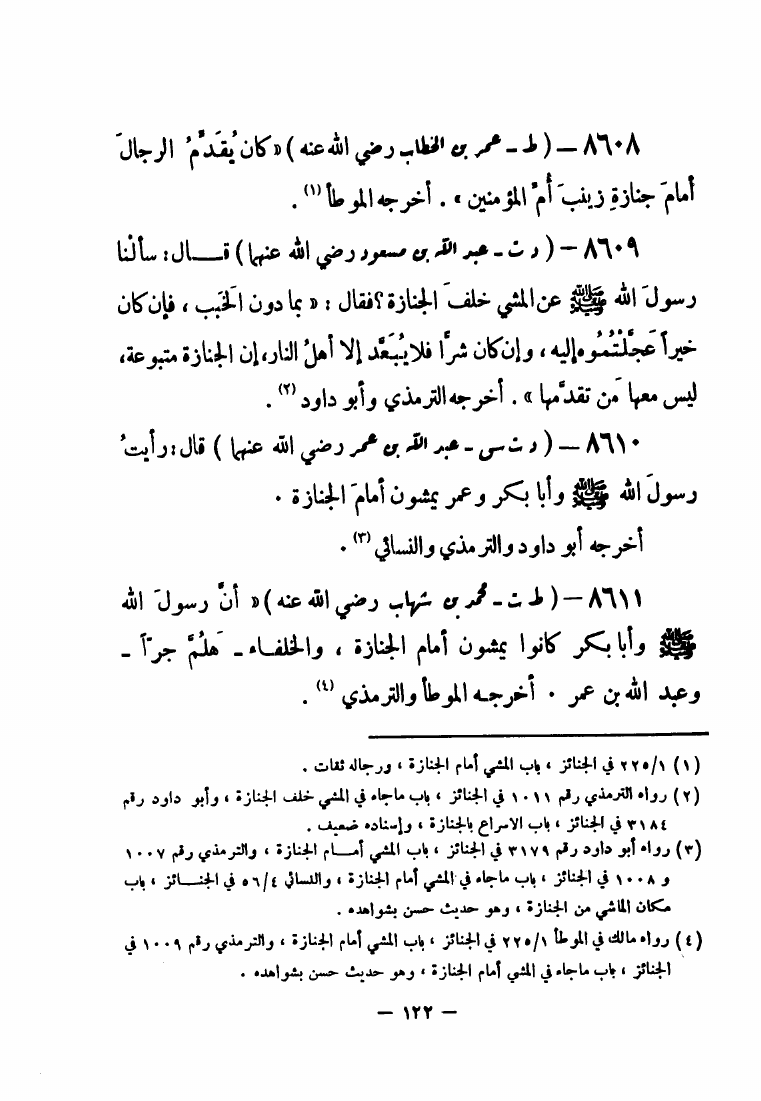 ٨٦٠٨ – ( ط - عمر بن الخطاب رضي الله عنه ) « كان يُقَدَّمُ الرجالَ
أمامَ جنازةِ زينبَ أُمِّ المؤمنين » . أخرجه الموطأ (١) .
٨٦٠٩ – ( د ت - عبد الله بن مسعود رضي الله عنهما ) قـــال : سألْنا
رسولَ الله ﷺ عن المشي خلفَ الجنازة ؟ فقال : « بما دون الخَبَب ، فإن كان
خيراً عَجَّلْتُمُوه إليه ، وإن كان شرًّا فلا يُبَعَّد إلا أهلُ النار ، إن الجنازة متبوعة ،
ليس معها مَن تقدَّمها » . أخرجه الترمذي وأبو داود (٢) .
٨٦١٠ – ( د ت س - عبد الله بن عمر رضي الله عنهما ) قال : رأيتُ
رسولَ الله ﷺ وأبا بكر وعمر يمشون أمامَ الجنازة .
أخرجه أبو داود والترمذي والنسائي (٣) .
٨٦١١ – ( ط ت - محمد بن شهاب رضي الله عنه ) « أنَّ رسولَ الله
ﷺ وأبا بكر كانوا يمشون أمام الجنازة ، والخلفـاء - هَلُمَّ جرّاً -
وعبد الله بن عمر . أخرجـه الموطأ والترمذي (٤) .
(١) ٢٢٥/١ في الجنائز ، باب المشي أمام الجنازة ، ورجاله ثقات .
(٢) رواه الترمذي رقم ١٠١١ في الجنائز ، باب ماجاء في المشي خلف الجنازة ، وأبو داود رقم
٣١٨٤ في الجنائز ، باب الاسراع بالجنازة ، وإسناده ضعيف .
(٣) رواه أبو داود رقم ٣١٧٩ في الجنائز ، باب المشي أمـــام الجنازة ، والترمذي رقم ١٠٠٧
و ١٠٠٨ في الجنائز ، باب ماجاء في المشي أمام الجنازة ، والنسائي ٥٦/٤ في الجنـــائز ، باب
مكان الماشي من الجنازة ، وهو حديث حسن بشواهده .
(٤) رواه مالك في الموطأ ٢٢٥/١ في الجنائز ، باب المشي أمام الجنازة ، والترمذي رقم ١٠٠٩ في
الجنائز ، باب ماجاء في المشي أمام الجنازة ، وهو حديث حسن بشواهده .
– ١٢٢ –